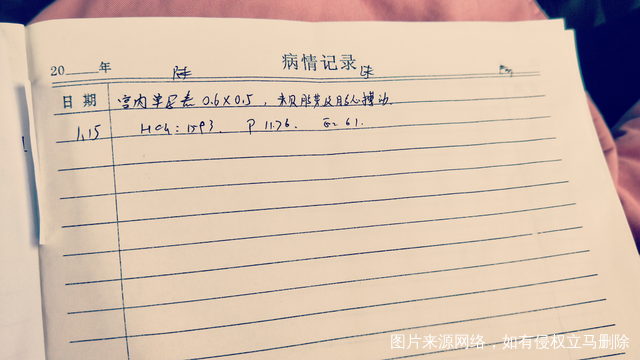 病情记录
20 年
日 期 宫内孕足袋 0.6×0.5，未见胎芽及胎心搏动.
1,15 HCG: 1593. P 11.76. E2 61.
图片来源网络，如有侵权立马删除